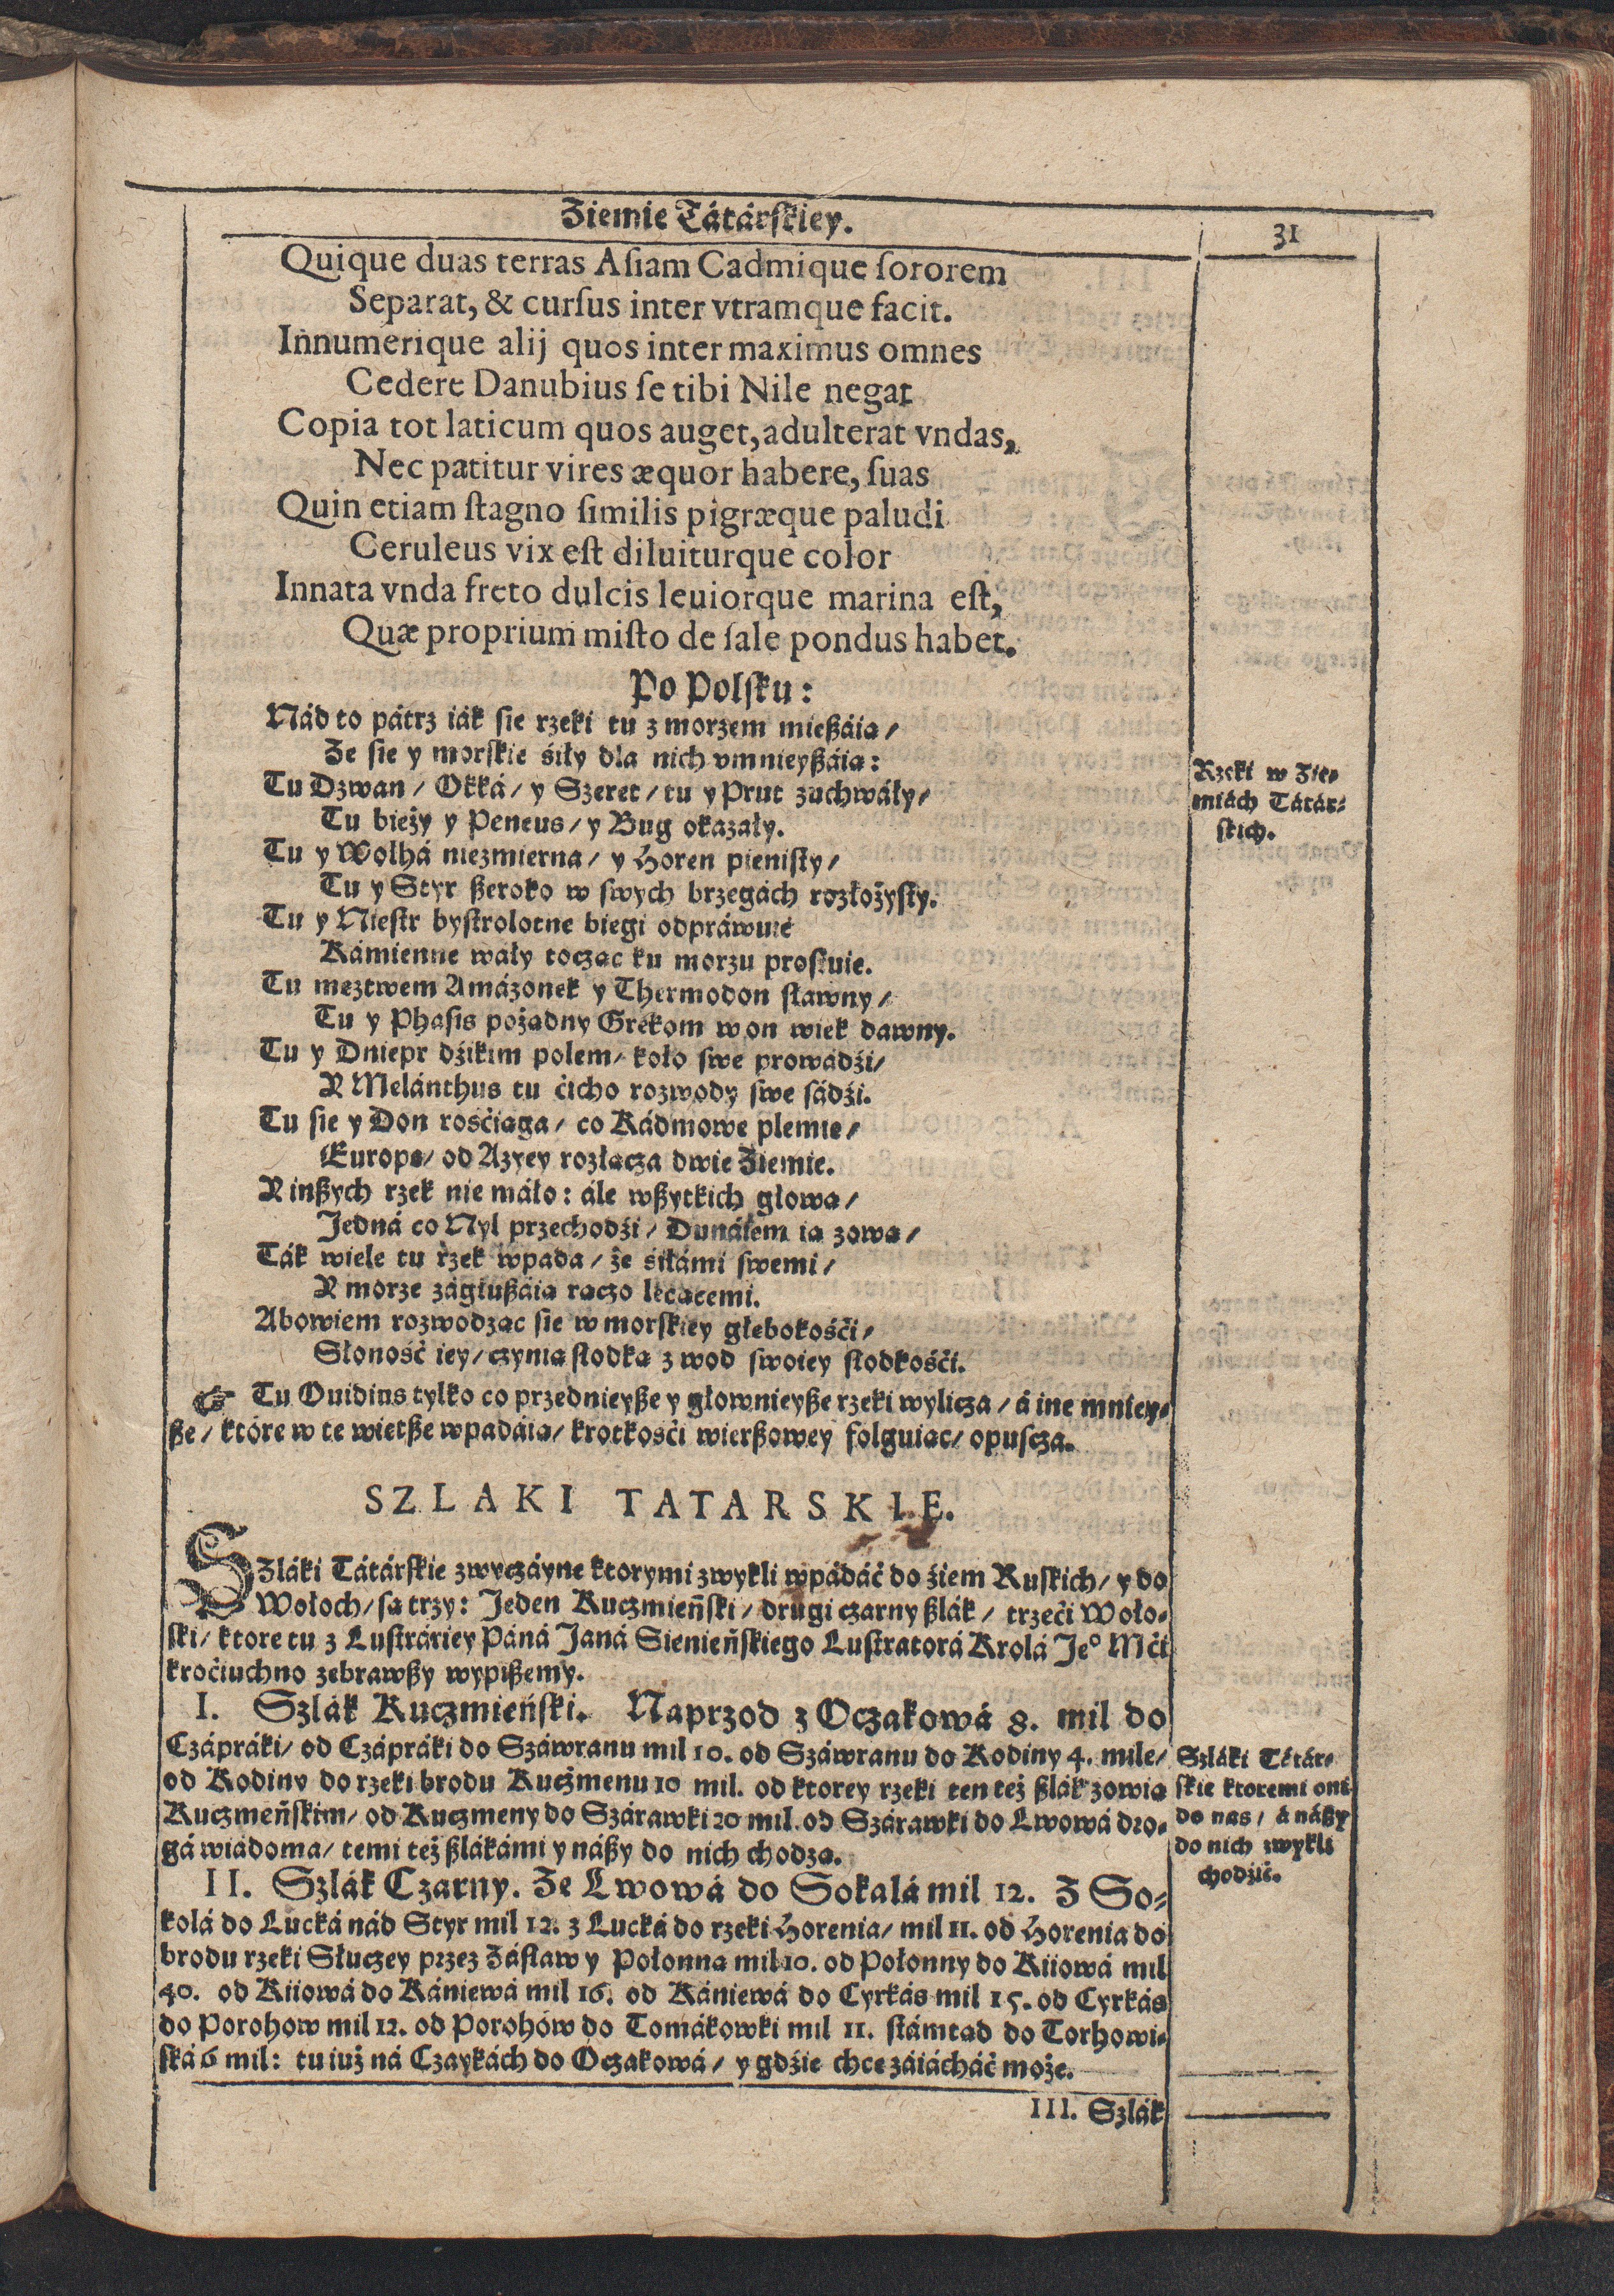 Ziemie Tátárſkiey.
31
Quique duas terras Aſiam Cadmique ſororem
Separat, & curſus inter vtramque facit.
Innumerique alij quos inter maximus omnes
Cedere Danubius ſe tibi Nile negat
Copia tot laticum quos auget, adulterat vndas,
Nec patitur vires æquor habere, ſuas
Quin etiam ſtagno ſimilis pigræque paludi
Ceruleus vix eſt diluiturque color
Innata vnda freto dulcis leuiorque marina eſt,
Quæ proprium miſto de ſale pondus habet.
Po Polſku:
Nád to pátrz iák ſie rzeki tu z morzem mießáia/
Ze ſie y morſkie śiły dla nich vmnieyßáia:
Tu Dzwan/ Okká/ y Szeret/ tu y Prut zuchwáły/
Tu bieży y Peneus/ y Bug okazáły.
Tu y Wolhá niezmierna/ y Horen pieniſty/
Tu y Styr ßeroko w ſwych brzegách rozłożyſty.
Tu y Nieſtr byſtrolotne biegi odpráwuie
Kámienne wały tocząc ku morzu proſtuie.
Tu meztwem Amázonek y Thermodon ſławny/
Tu y Phaſis pożądny Grekom w on wiek dawny.
Tu y Dniepr dźikim polem/ koło ſwe prowádźi/
Y Melánthus tu ćicho rozwody ſwe ſádźi.
Tu ſie y Don rośćiąga/ co Kádmowe plemie/
Europę/ od Azyey rozłącza dwie Ziemie.
Y inßych rzek nie máło: ále wßytkich głowa/
Jedná co Nyl przechodźi/ Dunáiem ią zową/
Ták wiele tu rzek wpada/ że śiłámi ſwemi/
Y morze zágłußáią rączo lecącemi.
Abowiem rozwodząc ſie w morſkiey głebokośći/
Słoność iey/ czynią ſłodką z wod ſwoiey ſłodkośći.
☞ Tu Ouidius tylko co przednieyße y głownieyße rzeki wylicza/ á ine mniey-
ße/ które w te wietße wpadáią/ krotkośći wierßowey folguiąc/ opuſcza.
Rzeki w Zie-
miách Tátár-
ſkich.
SZLAKI TATARSKIE.
SZláki Tátárſkie zwyczáyne ktorymi zwykli wpádáć do źiem Ruſkich/ y do
Wołoch/ ſą trzy: Jeden Kuczmieńſki/ drugi czarny ßlák/ trzeći Woło-
ſki/ ktore tu z Luſtráriey Páná Janá Sienieńſkiego Luſtratorá Krolá Jeº Mći
kroćiuchno zebrawßy wypißemy.
I. Szlák Kuczmieńſki. Naprzod z Oczakowá 8. mil do
Czápráki/ od Czápráki do Száwranu mil 10. od Száwranu do Kodiny 4. mile/
od Kodiny do rzeki brodu Kuczmenu 10 mil. od ktorey rzeki ten też ßlák zowią
Kuczmeńſkim/ od Kuczmeny do Szárawki 20 mil. od Szárawki do Lwowá dro-
gá wiádoma/ temi też ßlákámi y náßy do nich chodzą.
Szláki Tátár-
ſkie ktoremi oni
do nas/ á náßy
do nich zwykli
chodźić.
II. Szlák Czarny. Ze Lwowá do Sokalá mil 12. Z So-
kolá do Lucká nád Styr mil 12. z Lucká do rzeki Horenia/ mil 11. od Horenia do
brodu rzeki Słuczey przez Záſław y Połonną mil 10. od Połonny do Kiiowá mil
40. od Kiiowá do Kániewá mil 16. od Kániewá do Cyrkás mil 15. od Cyrkás
do Porohow mil 12. od Porohów do Tomákowki mil 11. ſtámtąd do Torhowi-
ſká 6 mil: tu iuż ná Czaykách do Oczakowá/ y gdźie chce záiácháć może.
III. Szlák